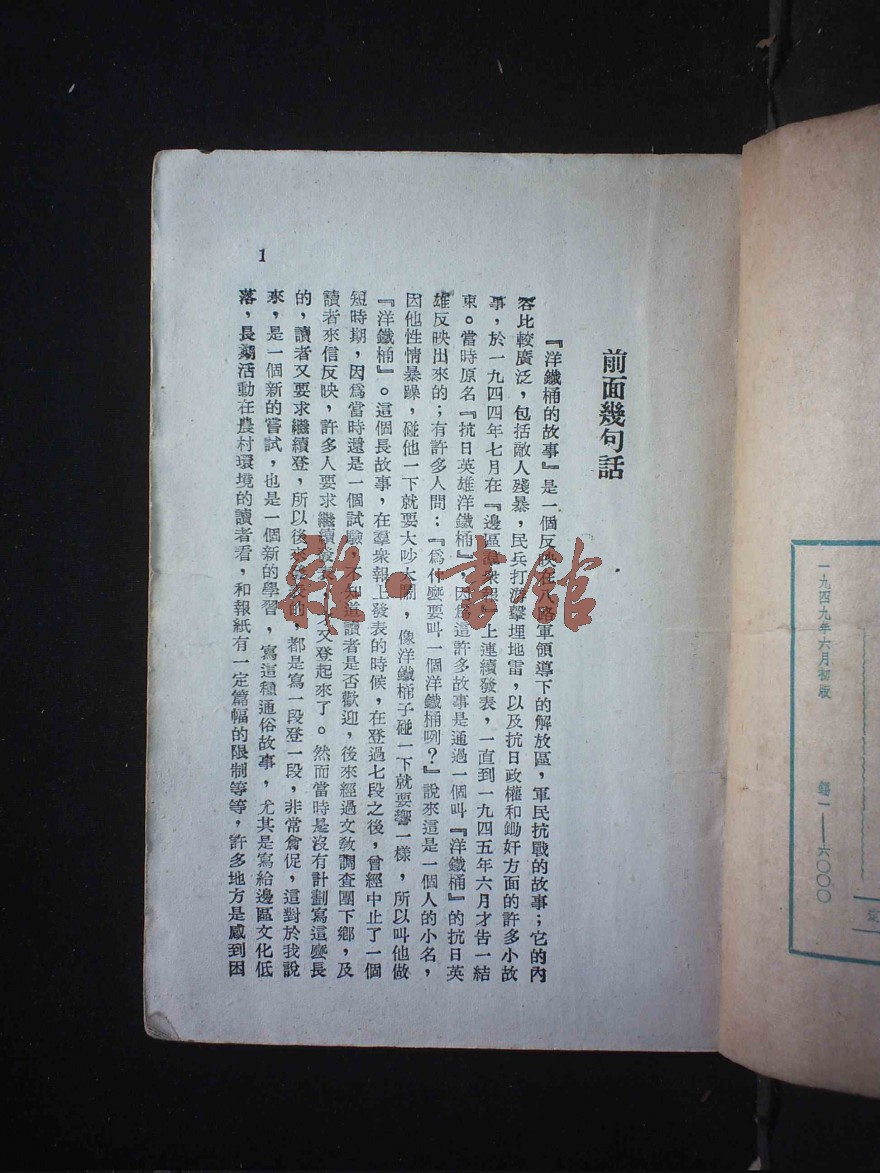 一九四九年六月初版
錫一——六〇〇〇
前面幾句話
『洋鐵桶的故事』是一個反映在八路軍領導下的解放區,軍民抗戰的故事;它的內
容比較廣泛,包括敵人殘暴,民兵打游擊埋地雷,以及抗日政權和鋤奸方面的許多小故
事,於一九四四年七月在『邊區羣衆報』上連續發表,一直到一九四五年六月才告一結
束。當時原名『抗日英雄洋鐵桶』,因爲這許多故事是通過一個叫『洋鐵桶』的抗日英
雄反映出來的;有許多人問:『爲什麽要叫一個洋鐵桶咧?』說來這是一個人的小名,
因他性情暴躁,碰他一下就要大吵大鬧,像洋鐵桶子碰一下就要響一樣,所以叫他做
『洋鐵桶』。這個長故事,在羣衆報上發表的時候,在登過七段之後,曾經中止了一個
短時期,因爲當時還是一個試驗,不知道讀者是否歡迎,後來經過文敎調查團下鄉,及
讀者來信反映,許多人要求繼續發表,才又登起來了。然而當時是沒有計劃寫這麽長
的,讀者又要求繼續登,所以後來發表的,都是寫一段登一段,非常倉促,這對於我說
來,是一個新的嘗試,也是一個新的學習,寫這種通俗故事,尤其是寫給邊區文化低
落,長期活動在農村環境的讀者看,和報紙有一定篇幅的限制等等,許多地方是感到困
1
雜·書館